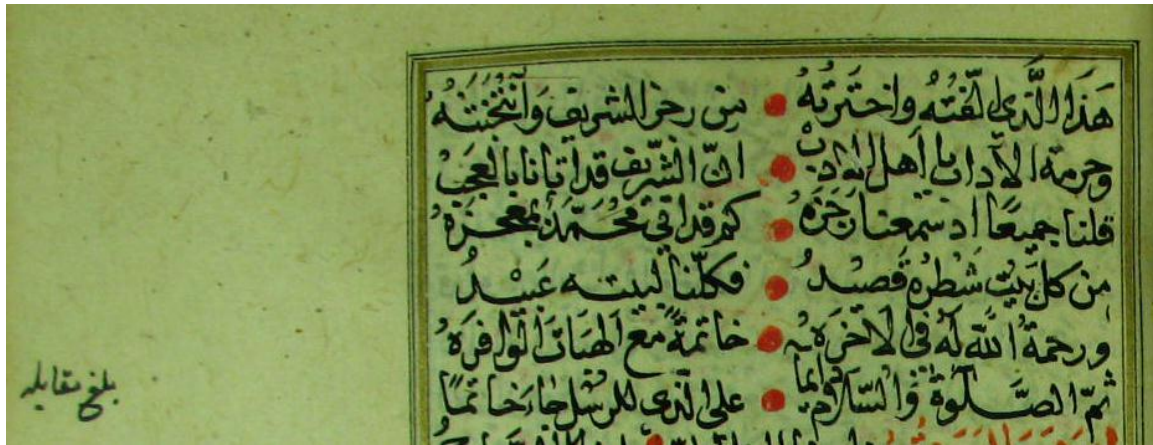 هَذَا الَّذِي لفّتُهُ واختَرتهُ • مِن رجزالشريف وَانتخبتُهُ
وحرمة الآداب يا اهل الادب • انّ الشَّريف قد اتانا بالعجَب
قلنا جميعًا اذ سمعنا رَجَزَهُ • كم قد اتى محَمّدٌ بمعجزَهُ
من كل بَيْت شَطرُه قَصِيدُ • فكلّنا لبيته عَبِيْدُ
ورحمةُ الله لَهُ في الآخرَه • خاتمةً مَع الهبَات الوَافرَهْ
ثمّ الصَّلوةُ وَالسّلام دَايما • على الذي للرسْل جَاءَ خَاتمًا
بلغ مقابله